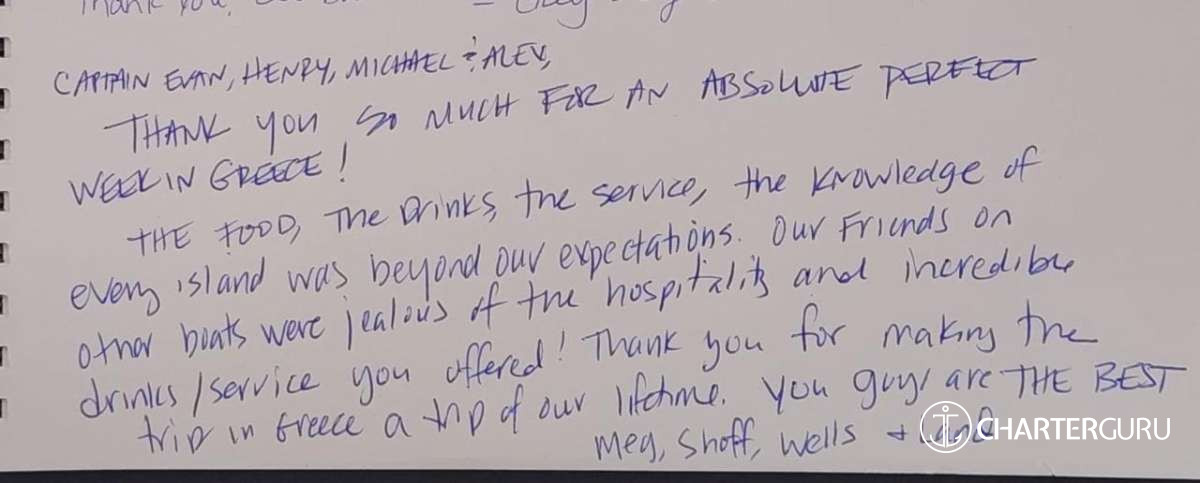 Thank you,
CAPTAIN EVAN, HENRY, MICHAEL & ALEX,
THANK YOU SO MUCH FOR AN ABSOLUTE PERFECT
WEEK IN GREECE!
THE FOOD, THE DRINKS, the service, the knowledge of
every island was beyond our expectations. Our Friends on
other boats were jealous of the hospitality and incredible
drinks/service you offered! Thank you for making the
trip in Greece a trip of our lifetime. You guys are THE BEST
Meg, Shoff, Wells +
CHARTERGURU